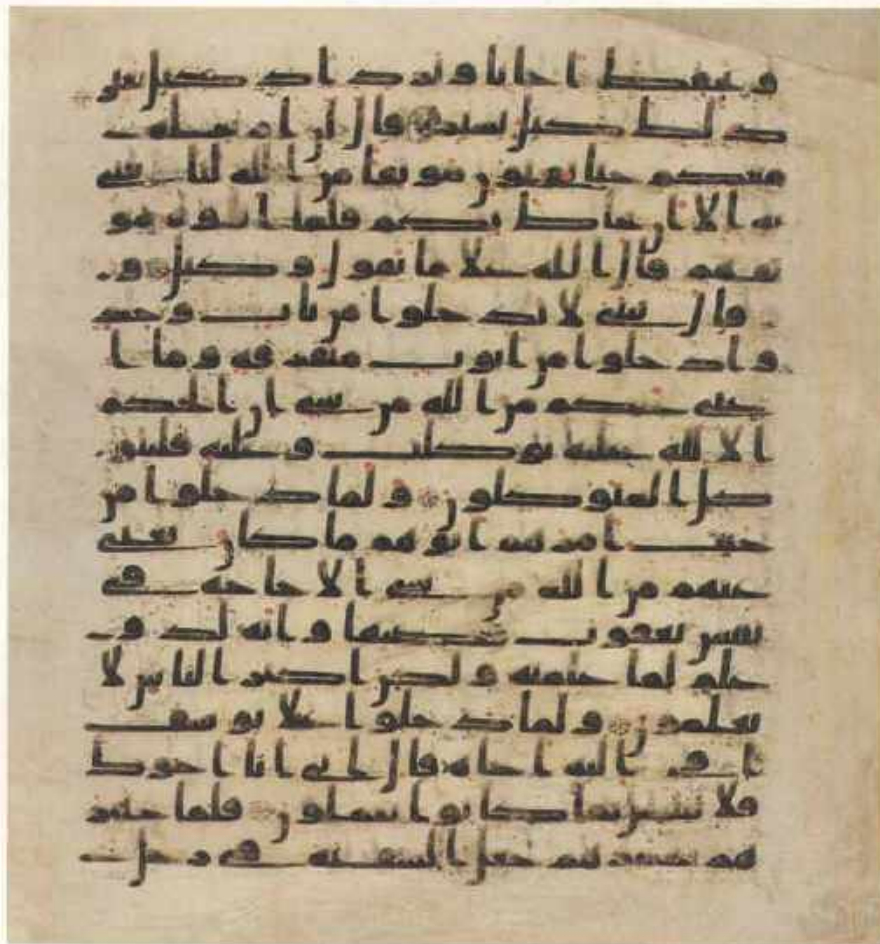 ونحفظ اخانا ونزداد كيل بعير
ذلك كيل يسير قال لن ارسله
معكم حتى توتون موثقا من الله لتاتنني
به الا ان يحاط بكم فلما اتوه مو
ثقهم قال الله على ما نقول وكيل و
قال يبني لا تدخلوا من باب وحد
وادخلوا من ابوب متفرقة وما ا
غني عنكم من الله من شي ان الحكم
الا لله عليه توكلت وعليه فليتو
كل المتوكلون ولما دخلوا من
حيث امرهم ابوهم ما كان يغني
عنهم من الله من شي الا حاجة في
نفس يعقوب قضيها وانه لذو
علم لما علمنه ولكن اكثر الناس لا
يعلمون ولما دخلوا علا يوسف
اوى اليه اخاه قال اني انا اخوك
فلا تبتئس بما كانوا يعملون فلما جهز
هم بجهزهم جعل السقية في رحل